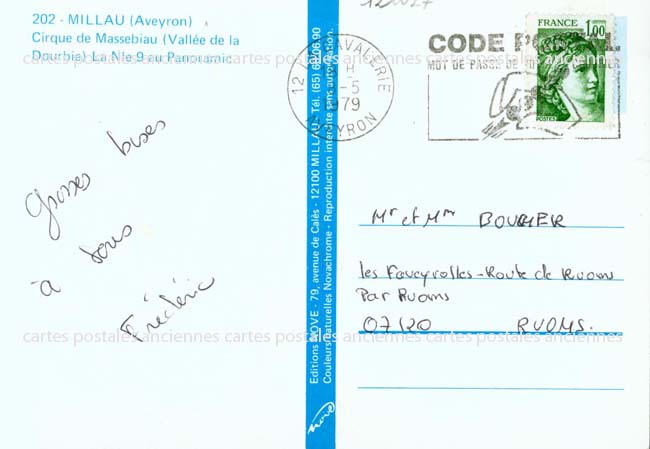 202 - MILLAU (Aveyron)
Cirque de Massebiau (Vallée de la
Dourbie) La Nle 9 au Panoramic
12027
LA CAVALERIE
12 H
-5
1979
AVEYRON
CODE POSTAL
MOT DE PASSE DE
FRANCE
1,00
POSTES
Grosses bises
à tous
Frédéric
Editions NOVE - 79, avenue de Calès - 12100 MILLAU - Tél. (65) 60.06.90
Couleurs naturelles Novachrome - Reproduction interdite sans autorisation.
nove
Mr et Mme BOUCHER
les Faveyrolles - Route de Ruoms
Par Ruoms
07120 RUOMS.
cartes postales anciennes cartes postales anciennes cartes postales anciennes
cartes postales anciennes cartes postales anciennes cartes postales anciennes